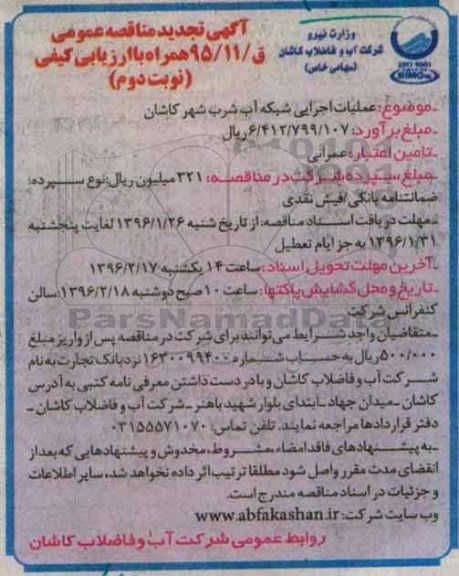 وزارت نیرو
شرکت آب و فاضلاب کاشان
(سهامی خاص)
آگهی تجدید مناقصه عمومی
ق/۹۵/۱۱ همراه با ارزیابی کیفی
(نوبت دوم)
ـ موضوع: عملیات اجرایی شبکه آب شرب شهر کاشان
ـ مبلغ برآورد: ۶/۴۱۲/۷۹۹/۱۰۷ ریال
ـ تامین اعتبار: عمرانی
ـ مبلغ سپرده شرکت در مناقصه: ۳۲۱ میلیون ریال: نوع سپرده:
ضمانتنامه بانکی/فیش نقدی
ـ مهلت دریافت اسناد مناقصه: از تاریخ شنبه ۱۳۹۶/۱/۲۶ لغایت پنجشنبه
۱۳۹۶/۱/۳۱ به جز ایام تعطیل
ـ آخرین مهلت تحویل اسناد: ساعت ۱۴ یکشنبه ۱۳۹۶/۲/۱۷
ـ تاریخ و محل گشایش پاکتها: ساعت ۱۰ صبح دوشنبه ۱۳۹۶/۲/۱۸: سالن
کنفرانس شرکت
ـ متقاضیان واجد شرایط می توانند برای شرکت در مناقصه پس از واریز مبلغ
۵۰۰/۰۰۰ ریال به حساب شماره ۱۶۳۰۰۹۹۴۰۰ نزد بانک تجارت به نام
شرکت آب و فاضلاب کاشان و با در دست داشتن معرفی نامه کتبی به آدرس
کاشان ـ میدان جهاد ـ ابتدای بلوار شهید باهنر ـ شرکت آب و فاضلاب کاشان ـ
دفتر قراردادها مراجعه نمایند. تلفن تماس: ۰۳۱۵۵۵۷۱۰۷۰
ـ به پیشنهادهای فاقد امضاء، مشروط، مخدوش و پیشنهادهایی که بعد از
انقضای مدت مقرر واصل شود مطلقا ترتیب اثر داده نخواهد شد، سایر اطلاعات
و جزئیات در اسناد مناقصه مندرج است.
وب سایت شرکت: www.abfakashan.ir
روابط عمومی شرکت آب و فاضلاب کاشان
ParsNamadData